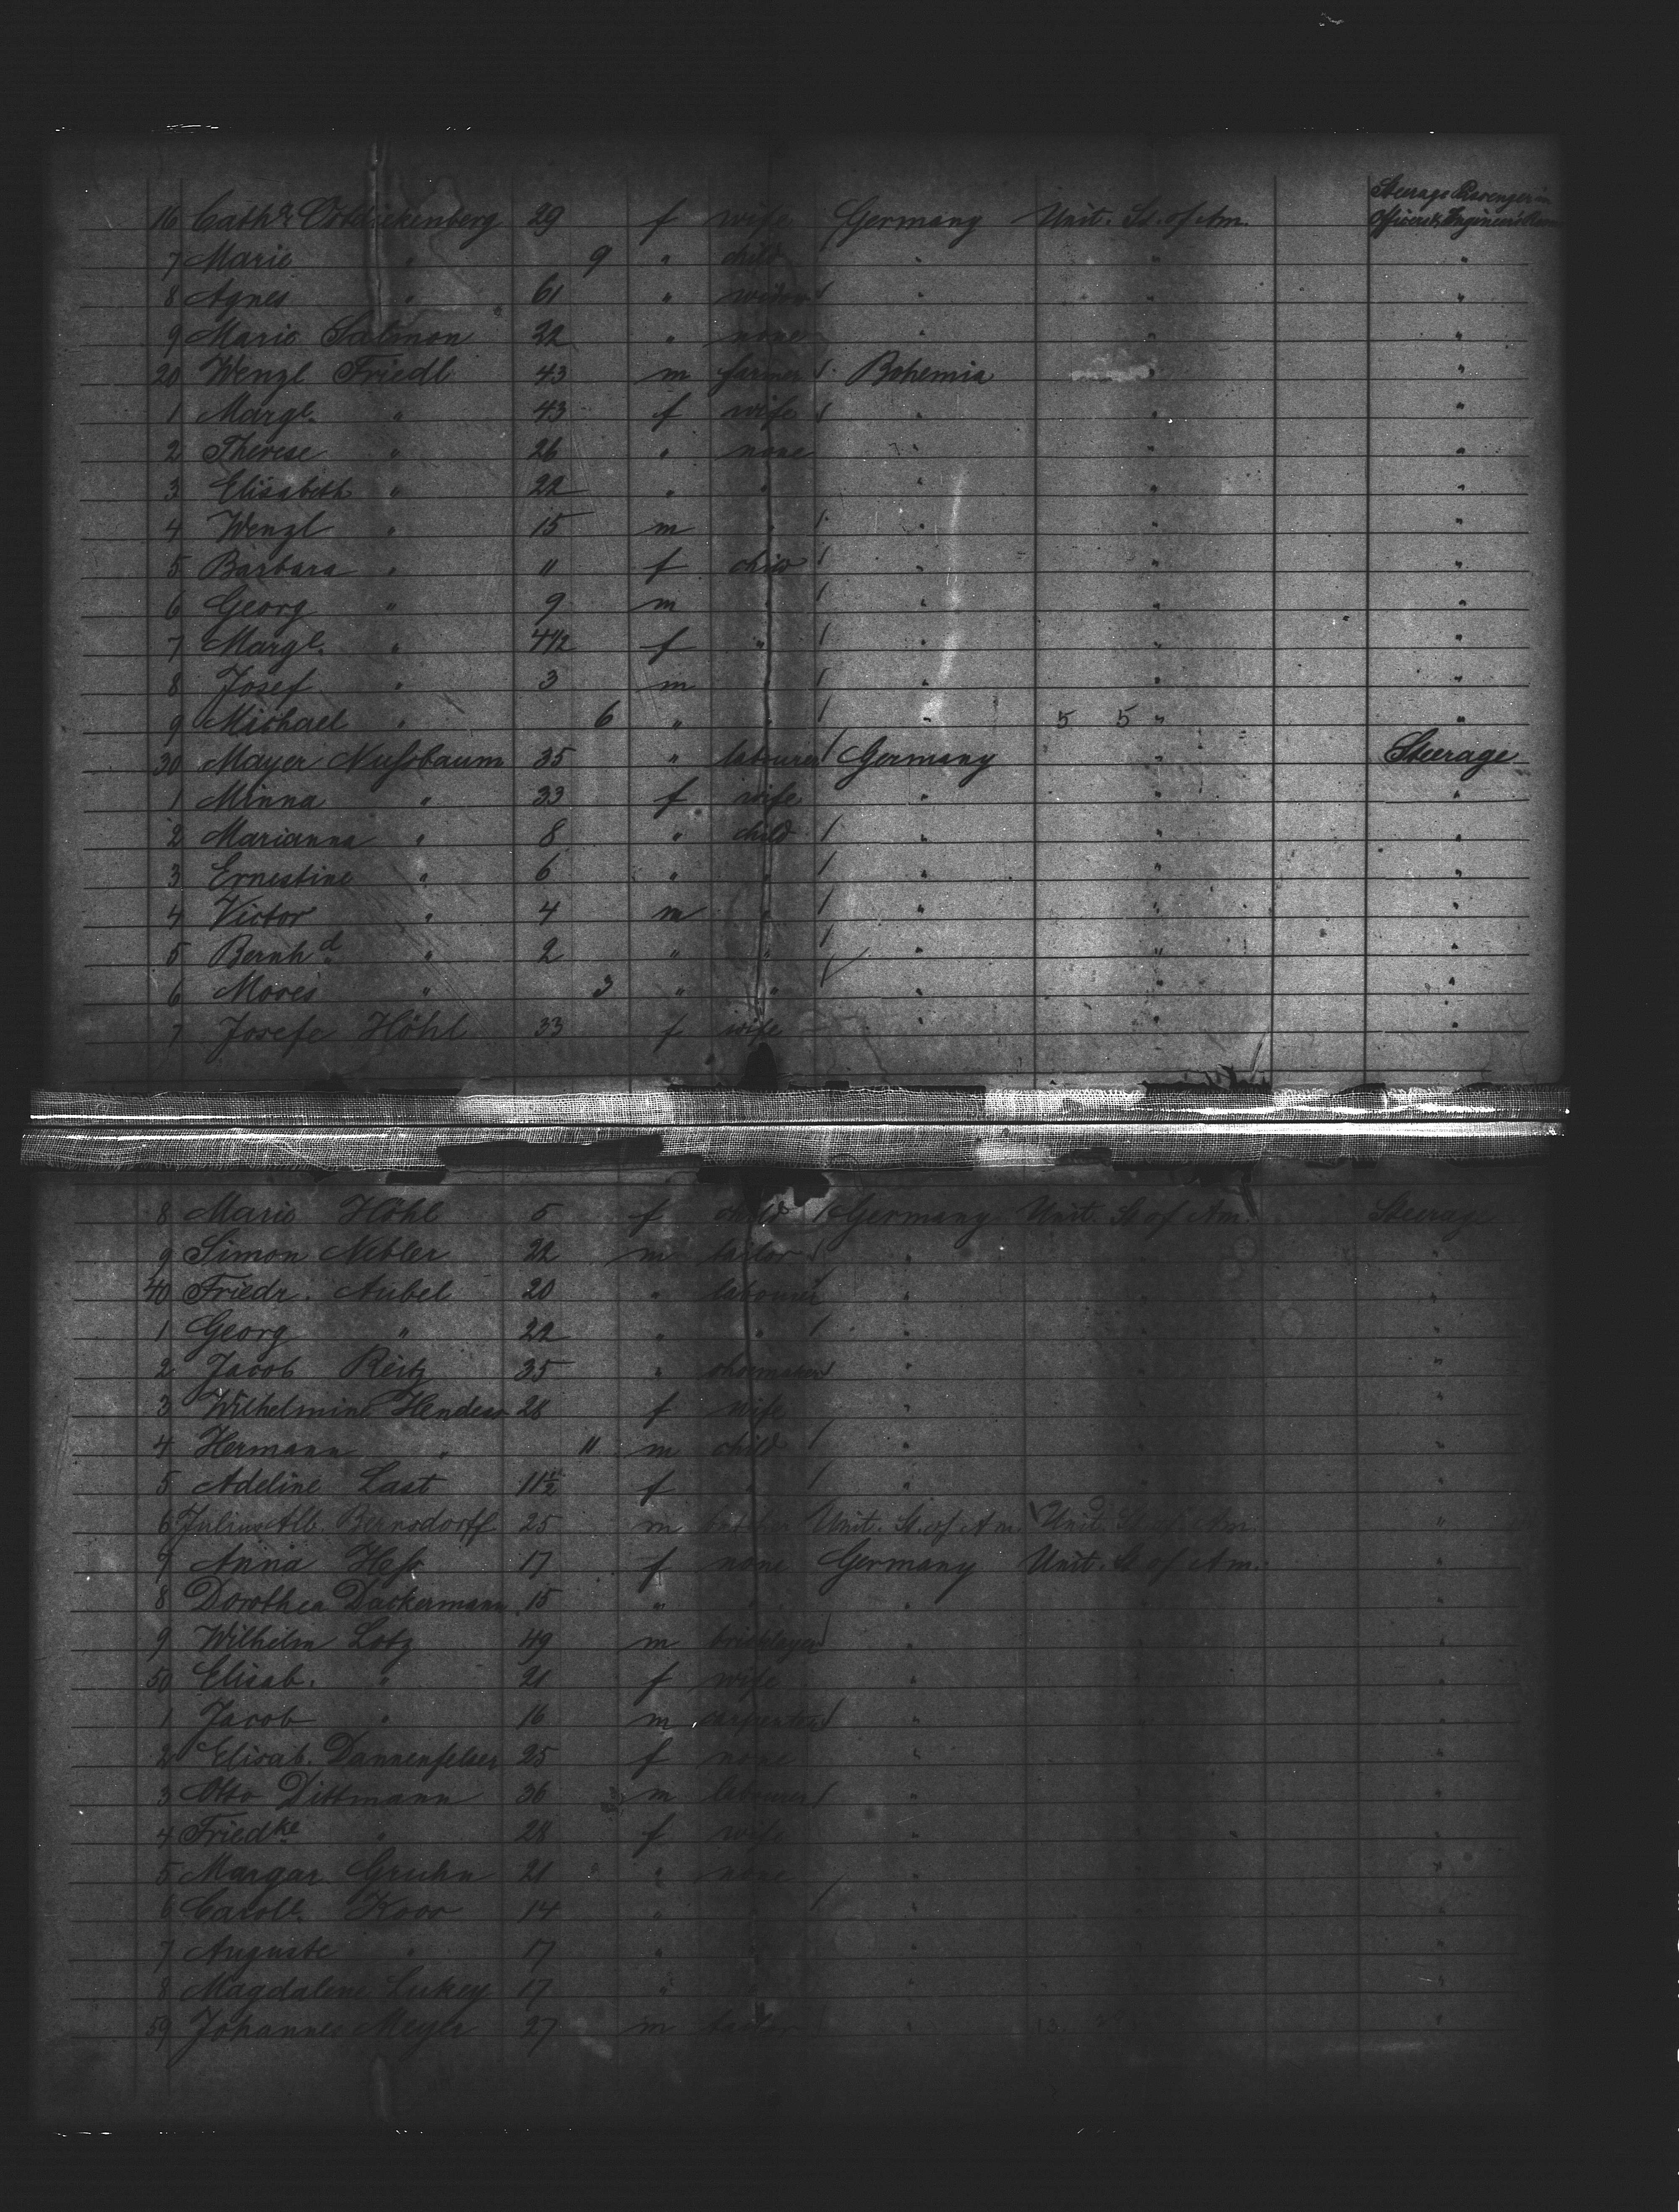 Steerage Passenger in
16 Cath.e Ostdickenberg 29 f wife Germany Unit. St. of Am. Officers & Engineers Room
7 Marie " 9 " child " " "
8 Agnes " 61 " widow " " "
9 Marie Salmon 22 " none " " "
20 Wenzl Friedl 43 m farmer Bohemia " "
1 Margt. " 43 f wife " " "
2 Therese " 26 " none " " "
3 Elisabeth " 22 " " " " "
4 Wenzl " 15 m " " " "
5 Barbara " 11 f child " " "
6 Georg " 9 m " " " "
7 Margt. " 4 1/2 f " " " "
8 Josef " 3 m " " " "
9 Michael " 6 " " " 5 5 " "
30 Mayer Nußbaum 35 " labourer Germany " Steerage
1 Minna " 33 f wife " " "
2 Marianna " 8 " child " " "
3 Ernestine " 6 " " " " "
4 Victor " 4 m " " " "
5 Bernhd " 2 " " " " "
6 Moses " 3 " " " " "
7 Josefe Höhl 33 f wife " " "
8 Marie Höhl 5 f child Germany Unit. St. of Am. Steerage
9 Simon Nebler 22 m tailor " " "
40 Friedr. Aubel 20 " labourer " " "
1 Georg " 22 " " " " "
2 Jacob Reitz 35 " shoemaker " " "
3 Wilhelmine Hendess 28 f wife " " "
4 Hermann " 11 m child " " "
5 Adeline Last 11 1/2 f " " " "
6 Julius Alb. Bernsdorff 25 m butcher Unit. St. of Am. Unit. St. of Am. "
7 Anna Heß 17 f none Germany Unit. St. of Am. "
8 Dorothea Dackermann 15 " " " " "
9 Wilhelm Lotz 49 m bricklayer " " "
50 Elisab. " 21 f wife " " "
1 Jacob " 16 m carpenter " " "
2 Elisab. Dannenfelser 25 f none " " "
3 Otto Dittmann 36 m labourer " " "
4 Friedke " 28 f wife " " "
5 Margar. Gruhn 21 " none " " "
6 Caroll. Koos 14 " " " " "
7 Auguste " 17 " " " " "
8 Magdalene Lukey 17 " " " " "
59 Johannes Meyer 27 m tailor " 13 "